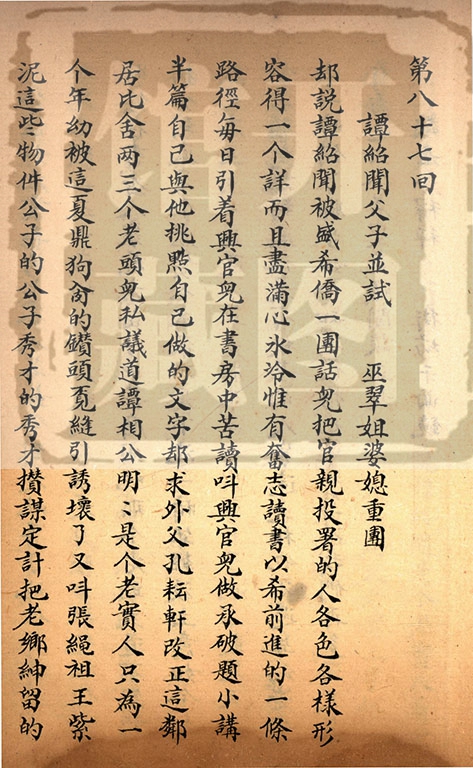 第八十七回
譚紹聞父子並試　巫翠姐婆媳重圓
却説譚紹聞被盛希僑一團話兒把官親投署的人各色各様形
容得一个詳而且盡滿心氷冷惟有奮志讀書以希前進的一條
路徑每日引着興官兒在書房中苦讀呌興官兒做承破題小講
半篇自己與他桃㸃自己做的文字却求外父孔耘軒改正這鄰
居比舍两三个老頭兒私議道譚相公明〻是个老實人只為一
个年幼被這夏鼎狗肏的鑽頭覓縫引誘壊了又呌張繩祖王紫
泥這些物件公子的公子秀才的秀才攅謀定計把老鄉紳留的
開圖
館藏